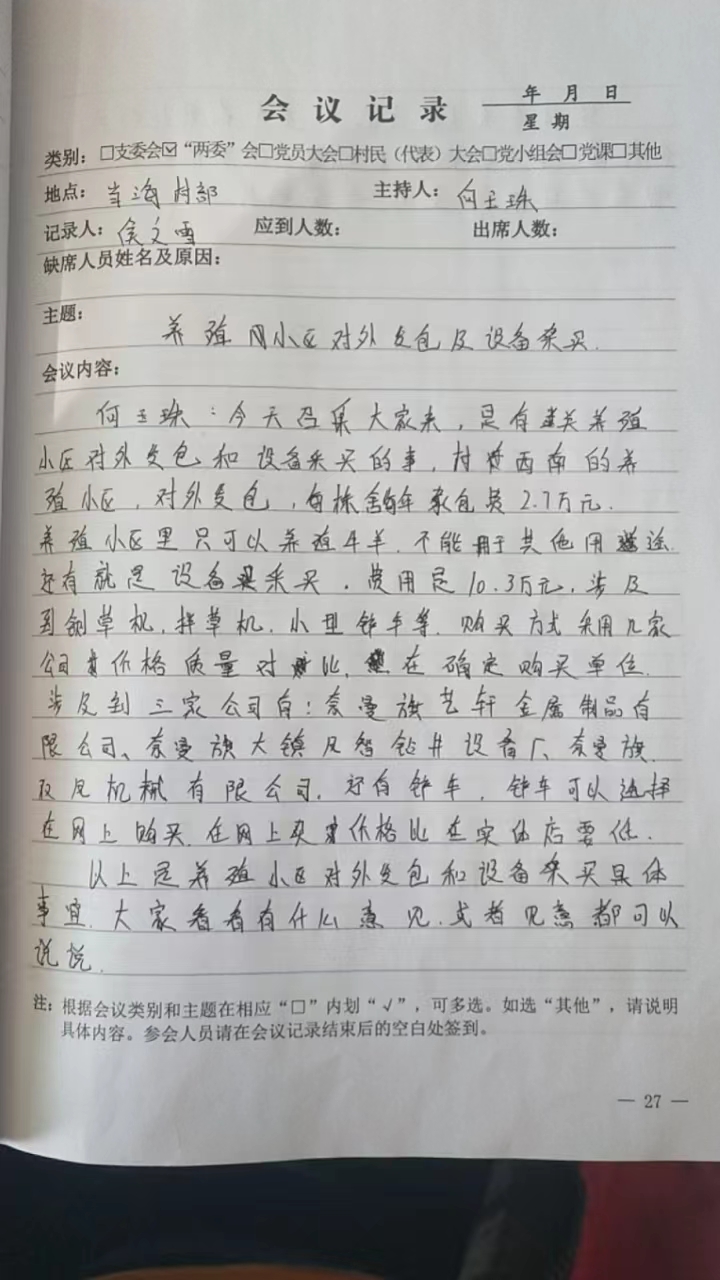 会议记录 年 月 日
星 期
类别：□支委会☑“两委”会□党员大会□村民（代表）大会□党小组会□党课□其他
地点：当海村部 主持人：何玉珠
记录人：侯文雪 应到人数： 出席人数：
缺席人员姓名及原因：
主题：
养殖小区对外发包及设备采买.
会议内容：
何玉珠：今天召集大家来，是有关养殖
小区对外发包和设备采买的事，村西南的养
殖小区，对外发包，每栋每年承包费2.7万元.
养殖小区里只可以养殖牛羊.不能用于其他用途.
还有就是设备采买.费用是10.3万元.涉及
到铡草机，拌草机.小型铲车等.购买方式采用几家
公司价格质量对比，在确定购买单位.
涉及到三家公司有：奈曼旗艺轩金属制品有
限公司、奈曼旗大镇凡智钻井设备厂、奈曼旗
双凤机械有限公司.还有铲车，铲车可以选择
在网上购买.在网上买价格比在实体店要低.
以上是养殖小区对外发包和设备采买具体
事宜.大家看看有什么意见.或者见意都可以
说说.
注：根据会议类别和主题在相应“□”内划“√”，可多选。如选“其他”，请说明
具体内容。参会人员请在会议记录结束后的空白处签到。
— 27 —